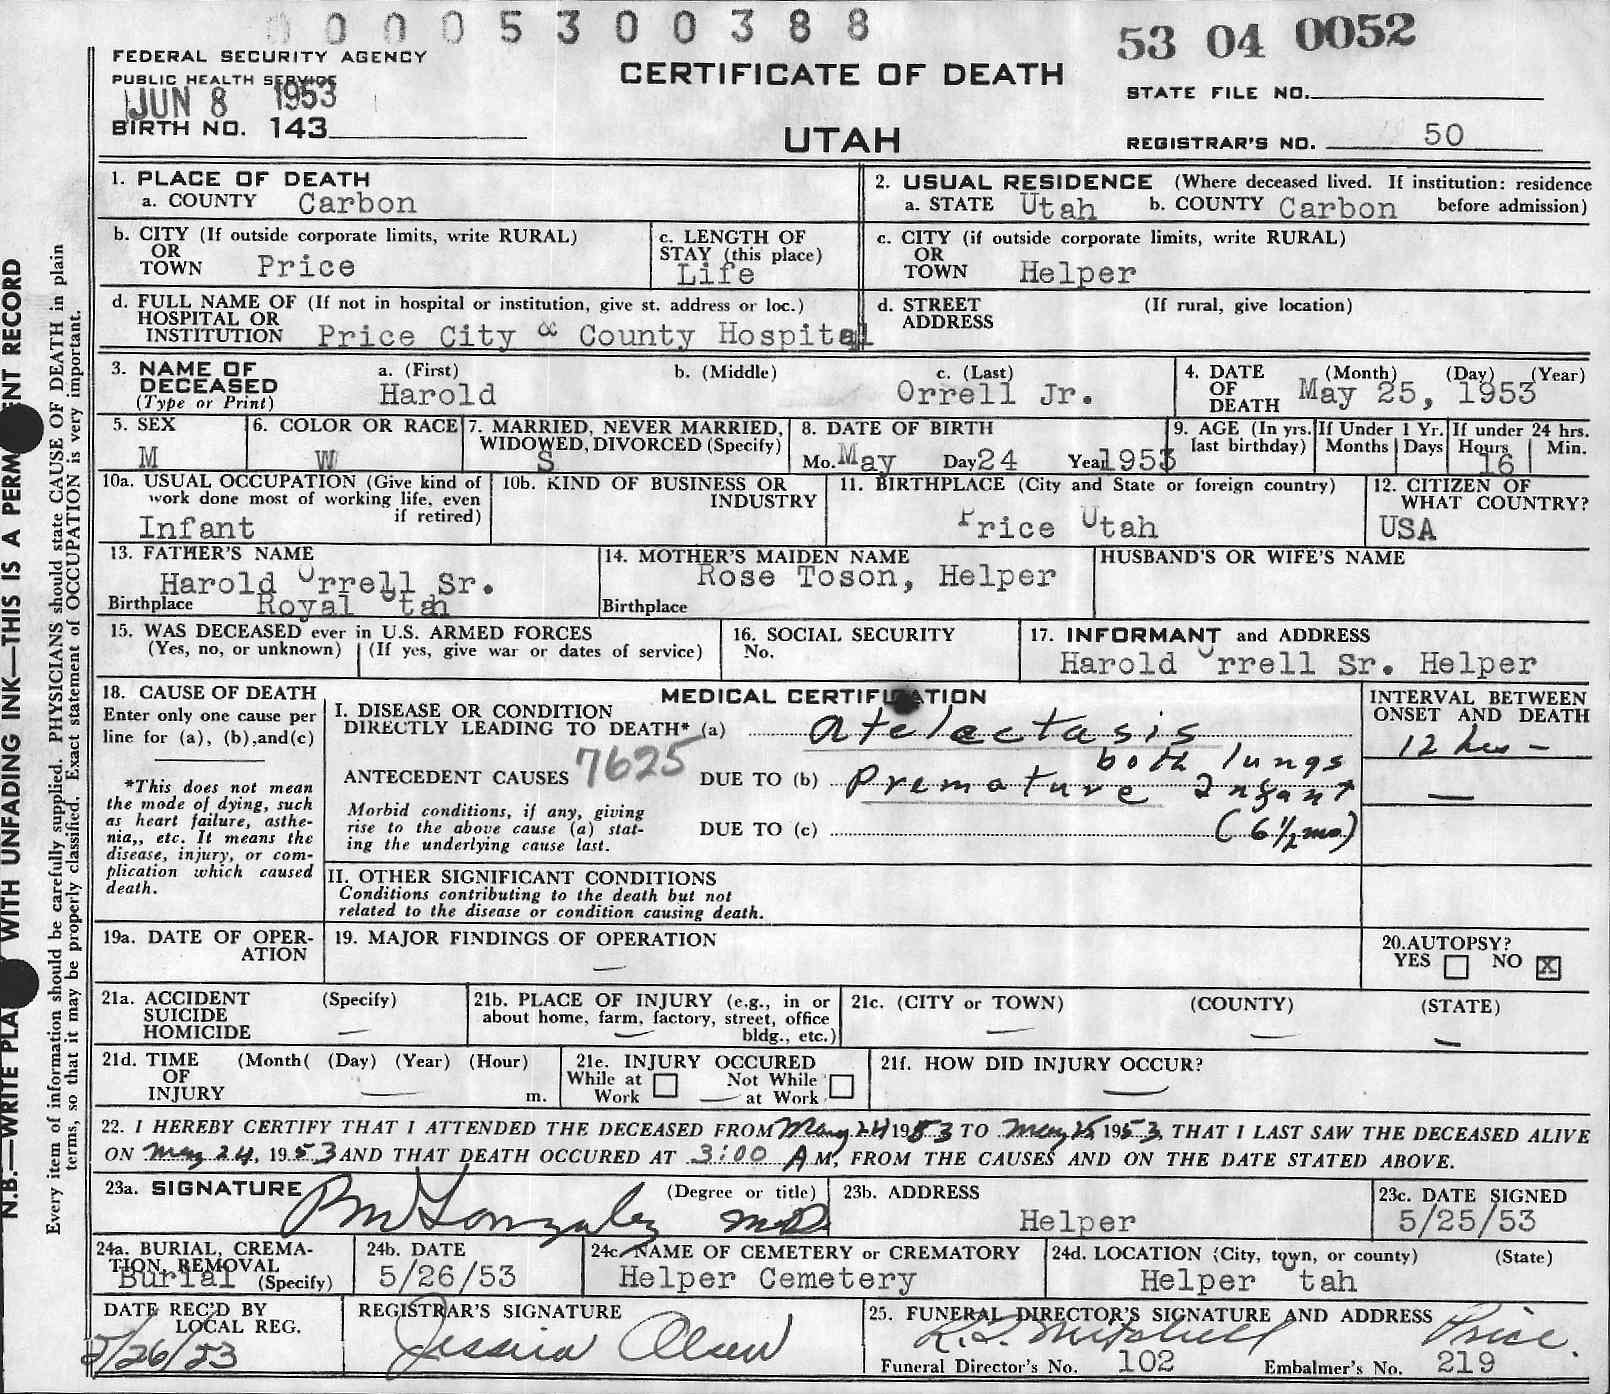 0 0 0 0 5 3 0 0 3 8 8
53 04 0052
FEDERAL SECURITY AGENCY
PUBLIC HEALTH SERVICE
JUN 8 1953
BIRTH NO. 143
CERTIFICATE OF DEATH
UTAH
STATE FILE NO.
REGISTRAR'S NO. 50
1. PLACE OF DEATH
a. COUNTY Carbon
2. USUAL RESIDENCE (Where deceased lived. If institution: residence
a. STATE Utah b. COUNTY Carbon before admission)
b. CITY (If outside corporate limits, write RURAL)
OR
TOWN Price
c. LENGTH OF
STAY (this place)
Life
c. CITY (if outside corporate limits, write RURAL)
OR
TOWN Helper
d. FULL NAME OF (If not in hospital or institution, give st. address or loc.)
HOSPITAL OR
INSTITUTION Price City & County Hospital
d. STREET (If rural, give location)
ADDRESS
3. NAME OF
DECEASED
(Type or Print)
a. (First) b. (Middle) c. (Last)
Harold Orrell Jr.
4. DATE (Month) (Day) (Year)
OF
DEATH May 25, 1953
5. SEX
M
6. COLOR OR RACE
W
7. MARRIED, NEVER MARRIED,
WIDOWED, DIVORCED (Specify)
S
8. DATE OF BIRTH
Mo. May Day 24 Year 1953
9. AGE (In yrs.
last birthday)
If Under 1 Yr.
Months Days
If under 24 hrs.
Hours Min.
16
10a. USUAL OCCUPATION (Give kind of
work done most of working life, even
if retired)
Infant
10b. KIND OF BUSINESS OR
INDUSTRY
11. BIRTHPLACE (City and State or foreign country)
Price Utah
12. CITIZEN OF
WHAT COUNTRY?
USA
13. FATHER'S NAME
Harold Orrell Sr.
Birthplace Royal Utah
14. MOTHER'S MAIDEN NAME
Rose Toson, Helper
Birthplace
HUSBAND'S OR WIFE'S NAME
15. WAS DECEASED ever in U.S. ARMED FORCES
(Yes, no, or unknown) (If yes, give war or dates of service)
16. SOCIAL SECURITY
No.
17. INFORMANT and ADDRESS
Harold Orrell Sr. Helper
18. CAUSE OF DEATH
Enter only one cause per
line for (a), (b), and (c)
*This does not mean
the mode of dying, such
as heart failure, asthe-
nia,, etc. It means the
disease, injury, or com-
plication which caused
death.
MEDICAL CERTIFICATION
I. DISEASE OR CONDITION
DIRECTLY LEADING TO DEATH* (a) atelectasis
both lungs
ANTECEDENT CAUSES 7625 DUE TO (b) premature Infant
Morbid conditions, if any, giving
rise to the above cause (a) stat-
ing the underlying cause last.
DUE TO (c) (6 1/2 mo)
INTERVAL BETWEEN
ONSET AND DEATH
12 hrs —
—
II. OTHER SIGNIFICANT CONDITIONS
Conditions contributing to the death but not
related to the disease or condition causing death.
19a. DATE OF OPER-
ATION
19. MAJOR FINDINGS OF OPERATION
—
20. AUTOPSY?
YES NO X
21a. ACCIDENT (Specify)
SUICIDE
HOMICIDE —
21b. PLACE OF INJURY (e.g., in or
about home, farm, factory, street, office
bldg., etc.)
—
21c. (CITY or TOWN) (COUNTY) (STATE)
— — —
21d. TIME (Month( (Day) (Year) (Hour)
OF
INJURY — m.
21e. INJURY OCCURED
While at Not While
Work — at Work
21f. HOW DID INJURY OCCUR?
—
22. I HEREBY CERTIFY THAT I ATTENDED THE DECEASED FROM May 24 1953 TO May 25 1953, THAT I LAST SAW THE DECEASED ALIVE
ON May 24, 1953 AND THAT DEATH OCCURED AT 3:00 A M, FROM THE CAUSES AND ON THE DATE STATED ABOVE.
23a. SIGNATURE (Degree or title)
Gonzalez MD
23b. ADDRESS
Helper
23c. DATE SIGNED
5/25/53
24a. BURIAL, CREMA-
TION, REMOVAL
Burial (Specify)
24b. DATE
5/26/53
24c. NAME OF CEMETERY or CREMATORY
Helper Cemetery
24d. LOCATION (City, town, or county) (State)
Helper Utah
DATE REC'D BY
LOCAL REG.
5/26/53
REGISTRAR'S SIGNATURE
Jessica Olsen
25. FUNERAL DIRECTOR'S SIGNATURE AND ADDRESS
Mitchell Price.
Funeral Director's No. 102 Embalmer's No. 219
Every item of information should be carefully supplied. PHYSICIANS should state CAUSE OF DEATH in plain
terms, so that it may be properly classified. Exact statement of OCCUPATION is very important.
N.B.—WRITE PLA WITH UNFADING INK—THIS IS A PERM ENT RECORD